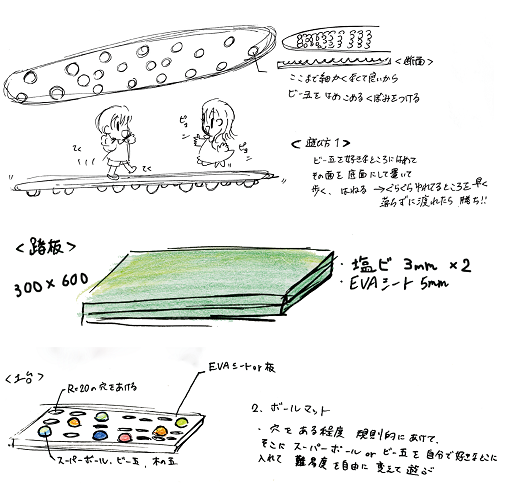 <断面>
ここまで細かくなくて良いから
ビー玉をはめこめるくぼみをつける
ピョン
ピョン
てく
てく
<遊び方1>
ビー玉を好きなところにはめて
その面を底面にして置いて
歩く、はねる →ぐらぐらゆれてるところを早く
落ちずに渡れたら 勝ち!!
<踏板>
300×600
・塩ビ 3mm ×2
・EVAシート 5mm
<土台>
R=20の穴をあける
EVAシートor板
スーパーボール、ビー玉、木の玉
2. ボールマット
・穴をある程度 規則的にあけて、
そこに スーパーボール or ビー玉を自分で好きなとこに
入れて 難易度を自由に変えて遊ぶ